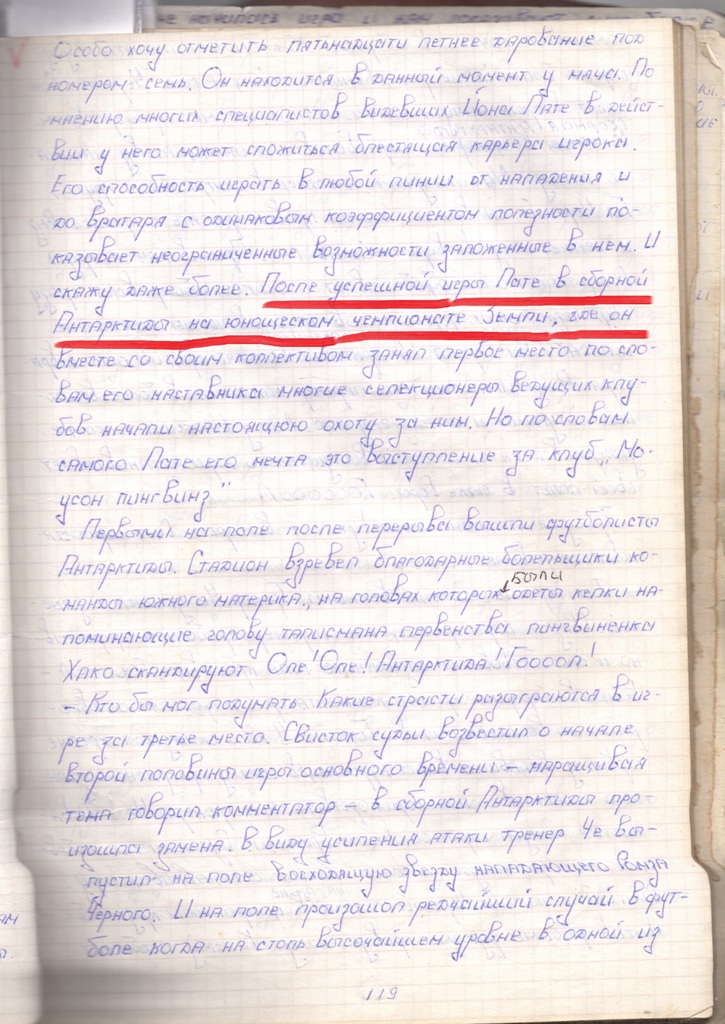 Особо хочу отметить пятьнадцати летнее дарование под
номером семь. Он находится в данный момент у мяча. По
мнению многих специалистов видевших Йона Пате в дейст-
вии у него может сложиться блестящая карьера игрока.
Его способность играть в любой линии от нападения и
до вратаря с одинаковым коэффициентом полезности по-
казывает неограниченные возможности заложенные в нем. И
скажу даже более. После успешной игры Пате в сборной
Антарктиды на юношеском чемпионате Земли, где он
вместе со своим коллективом занял первое место по сло-
вам его наставника многие селекционеры ведущих клу-
бов начали настоящюю охоту за ним. Но по словам
самого Пате его мечта это выступление за клуб „Мо-
усон пингвинз"
Первыми на поле после перерыва вышли футболисты
Антарктиды. Стадион взревел благодарные болельщики ко-
были
манды южного материка, на головах которых одеты кепки на-
поминающие голову талисмана первенства пингвиненка
Хако скандируют Оле! Оле! Антарктида! Гоооол!
– Кто бы мог подумать. Какие страсти разыграются в иг-
ре за третье место. Свисток судьи возвестил о начале
второй половины игры основного времени – наращивая
темп говорил комментатор – в сборной Антарктиды про-
изошла замена. В виду усиления атаки тренер Че вы-
пустил на поле восходящую звезду нападающего Ромза
Черного. И на поле произошол редчайший случай в фут-
боле когда на столь высочайшем уровне в одной из
119